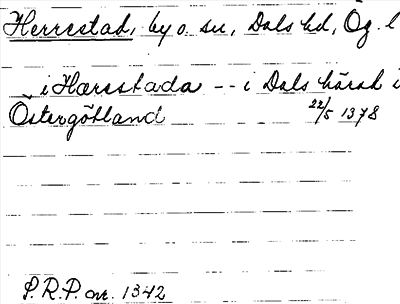 Herrestad, by o. sn, Dals hd, Ög. l
i Hærestada -- i Dals härad i
Östergötland 22/5 1378
P.R.P. nr. 1342